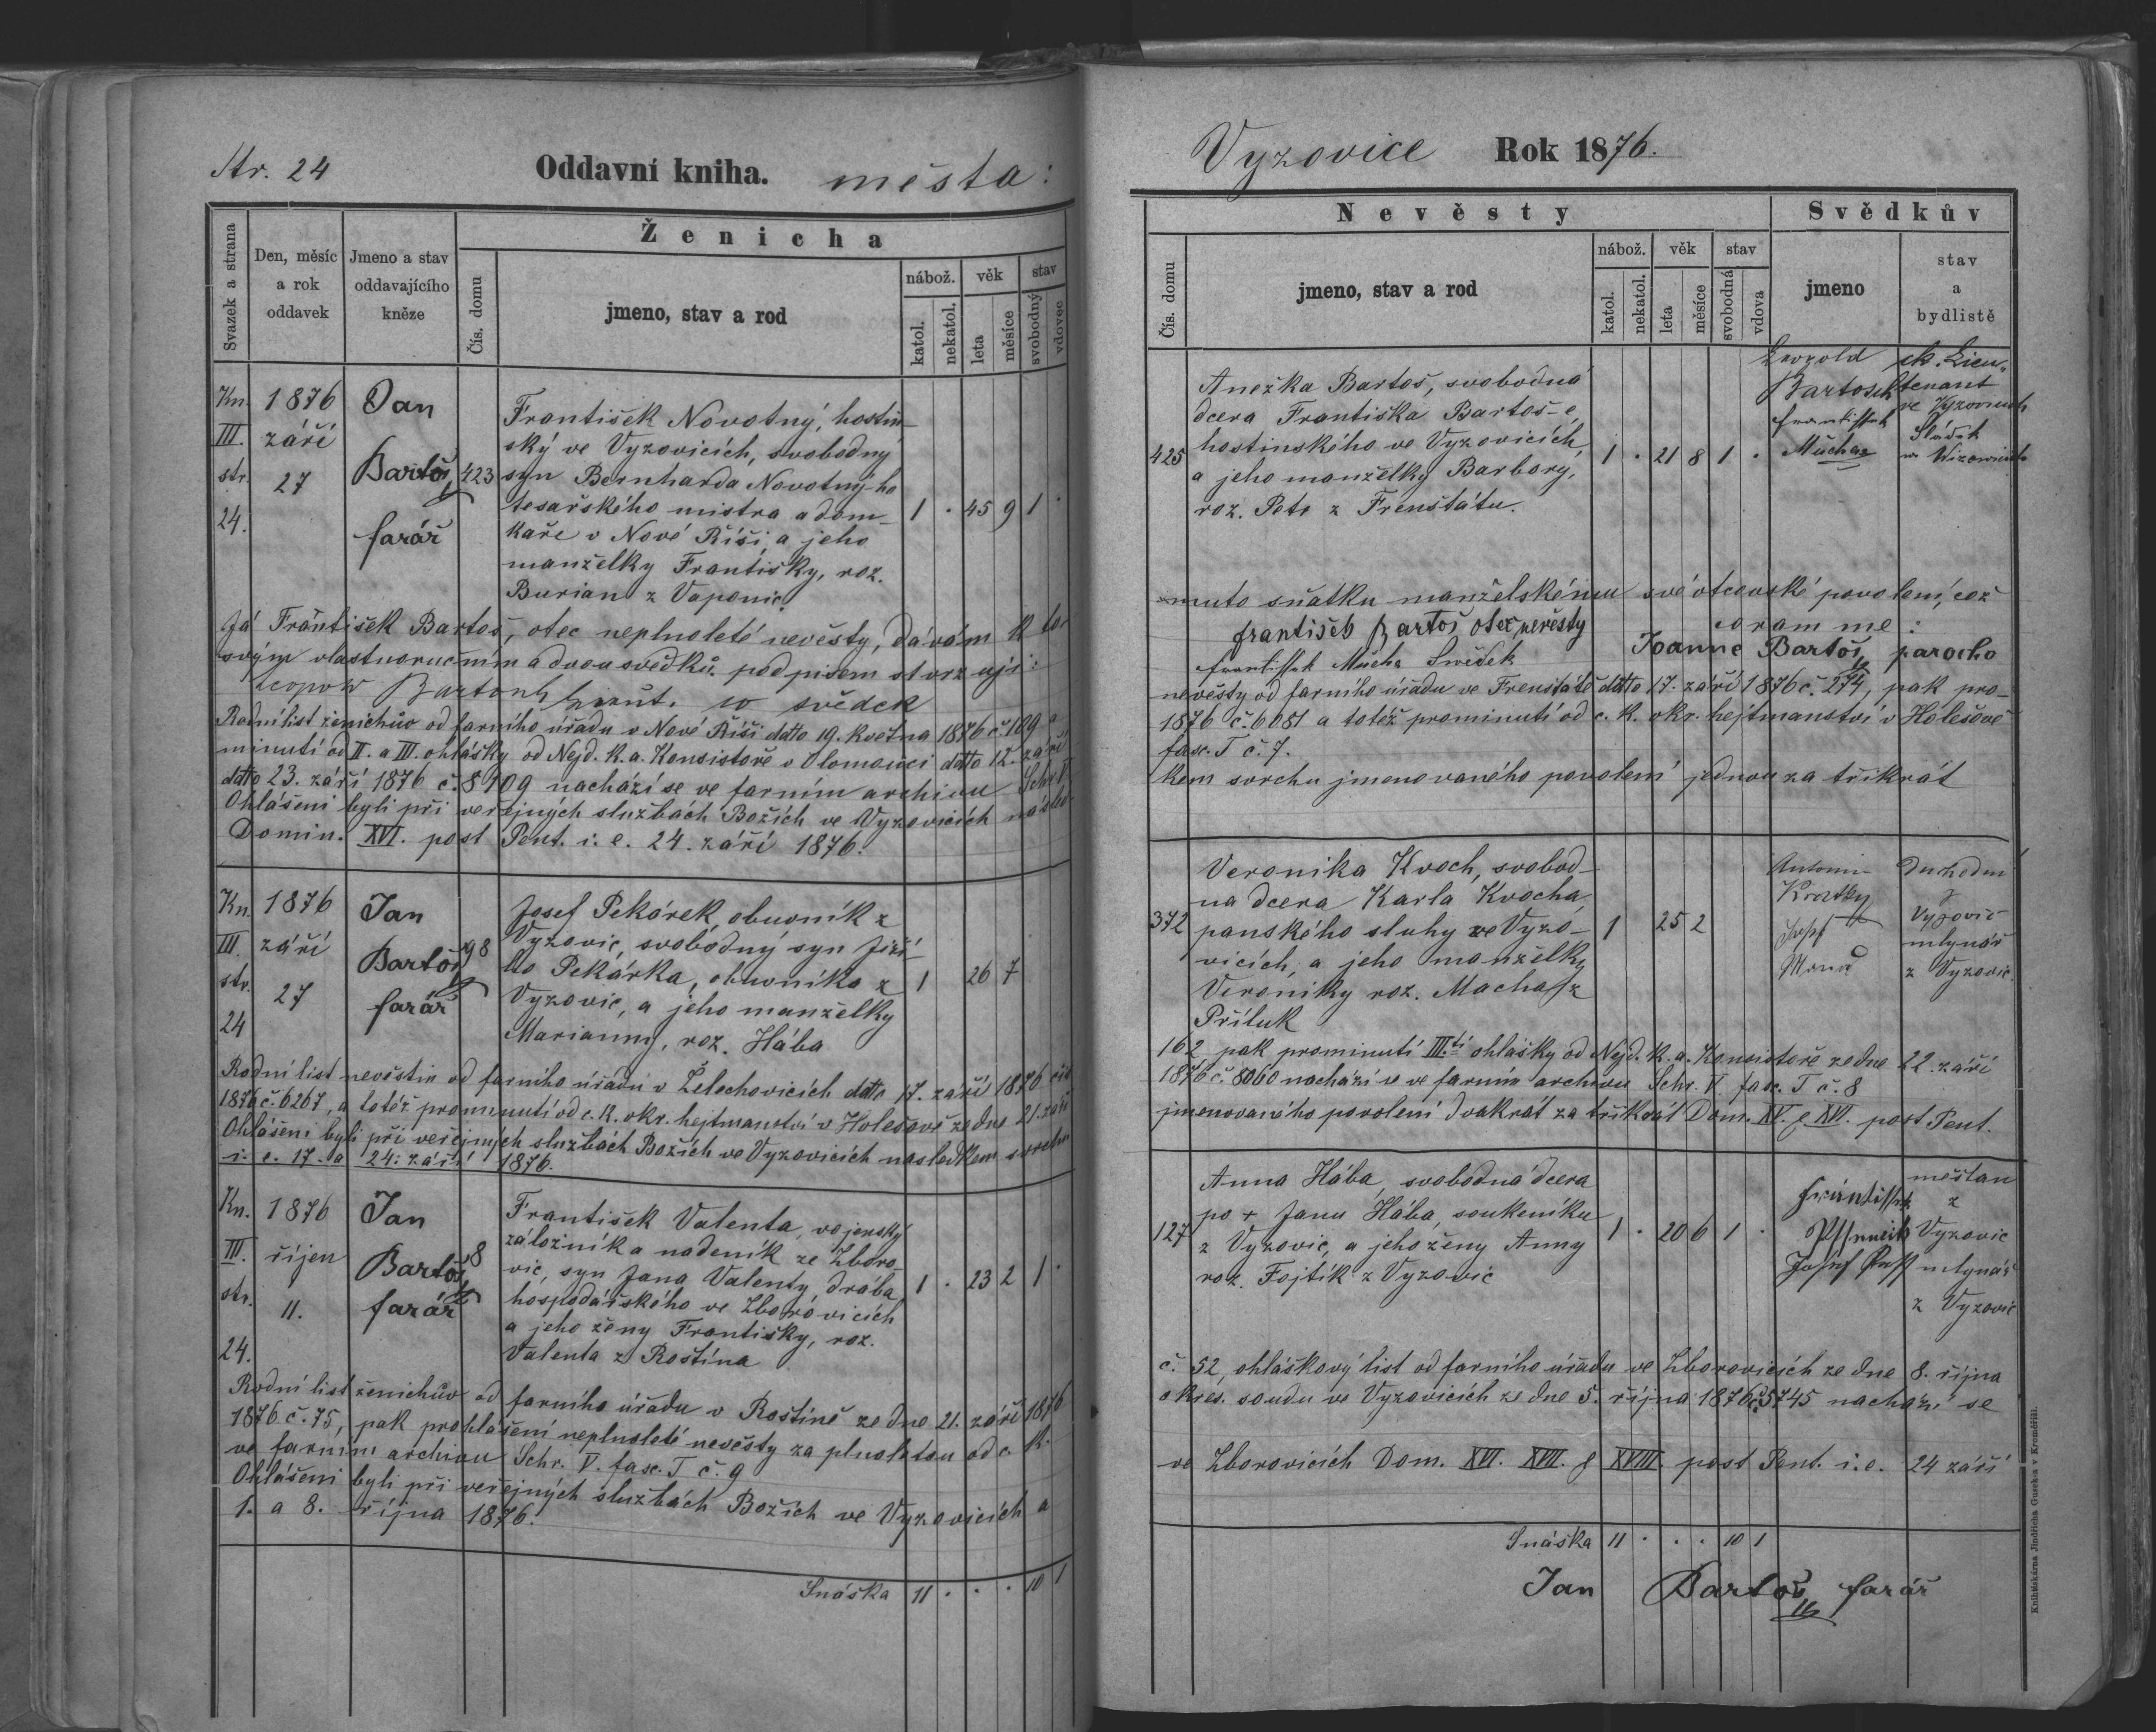 Str. 24
Oddavní kniha. města:
Svazek a strana
Den, měsíc a rok oddavek
Jmeno a stav oddavajícího kněze
Ženicha
Čís. domu
jmeno, stav a rod
nábož. věk stav
katol. nekatol. leta měsíce svobodný vdovec
Kn. III. str. 24.
1876 září 27
Jan Bartoš farář
423
František Novotný, hostin-
ský ve Vyzovicích, svobodný
syn Bernharda Novotny-ho
tesařského mistra a dom-
kaře v Nové Říši, a jeho
manželky Františky, roz.
Burian z Vaponic.
1 . 45 9 1 .
Já František Bartoš, otec neplnoleté nevěsty, dávám k to-
svým vlastnoručním a dvou svědků podpisem stvrzuji:
Leopold Bartosch co svědek
Rodní list ženichův od farního úřadu v Nové Říši datto 19. května 1876 č. 109, a
minutí od II. a III. ohlášky od Nejd. k. a. Konsistoře v Olomouci datto 12. září
datto 23. září 1876 č. 8109 nachází se ve farním archivu Schr. V.
Ohlášeni byli při veřejných službách Božích ve Vyzovicích násled-
Domin. XVI. post Pent. i. e. 24. září 1876.
Kn. III. str. 24
1876 září 27
Jan Bartoš farář
98
Josef Pekárek, obuvník z
Vyzovic, svobodný syn Jiří-
ho Pekárka, obuvníka z
Vyzovic, a jeho manželky
Marianny, roz. Hába
1 26 7
Rodní list nevěstin od farního úřadu v Želechovicích datto 17. září 1876 čís
1876 č. 6267, a totéž prominutí od c. k. okr. hejtmanství v Holešově ze dne 21. září
Ohlášeni byli při veřejných službách Božích ve Vyzovicích následkem svrchu
i. e. 17. a 24. září 1876.
Kn. III. str. 24.
1876 říjen 11.
Jan Bartoš farář
8
František Valenta, vojenský
záložník a nadeník ze Zboro-
vic, syn Jana Valenty, drába
hospodářského ve Zborovicích
a jeho ženy Františky, roz.
Valenta z Roštína
1 . 23 2 1 .
Rodní list ženichův od farního úřadu v Roštíně ze dne 21. září 1876
1876 č. 75, pak prohlášení neplnoleté nevěsty za plnoletou od c. k.
ve farním archivu Schr. V. fasc. T č. 9
Ohlášeni byli při veřejných službách Božích ve Vyzovicích a
1. a 8. října 1876.
Snáška 11 . . . 10 1
Vyzovice Rok 1876.
Nevěsty
Svědkův
Čís. domu
jmeno, stav a rod
nábož. věk stav
katol. nekatol. leta měsíce svobodná vdova
jmeno
stav a bydliště
425
Anežka Bartoš, svobodná
dcera Františka Bartoš-e,
hostinského ve Vyzovicích,
a jeho manželky Barbory,
roz. Petr z Frenštátu.
1 . 21 8 1 .
Leopold Bartosch
ck. Lieutenant
ve Vyzovicích
Mucha
Sládek
muto sňatku manželskému své otcovské povolení, což
františek Bartoš otec nevěsty
coram me:
Mucha Swědek
Joanne Bartoš, parocho
nevěsty od farního úřadu ve Frenštátě datto 17. září 1876 č. 274, pak pro-
1876 č. 6081 a totéž prominutí od c. k. okr. hejtmanství v Holešově
fasc. T č. 7.
kem svrchu jmenovaného povolení jednou za třikrát
372
Veronika Kvoch, svobod-
na dcera Karla Kvocha,
panského sluhy ve Vyzo-
vicích, a jeho manželky
Veroniky roz. Macha z
Příluk
1 25 2
Antonin Kratky
z Vyzovic
Josef
mlynář
z Vyzovic
162, pak prominutí III.tí ohlášky od Nejd. k. a. Konsistoře ze dne 22. září
1876 č. 8060 nachází se ve farním archivu Schr. V. fasc. T č. 8
jmenovaného povolení dvakrát za třikrát Dom. XV. & XVI. post Pent.
127
Anna Hába, svobodná dcera
po + Janu Hába, soukeníku
z Vyzovic, a jeho ženy Anny
roz. Fojtík z Vyzovic
1 . 20 6 1 .
měšťan
z
Vyzovic
Josef
mlynář
z Vyzovic
č. 52, ohláškový list od farního úřadu ve Zborovicích ze dne 8. října
okres. soudu ve Vyzovicích ze dne 5. října 1876 č. 5745 nachází se
ve Zborovicích Dom. XVI. XVII. & XVIII. post Pent. i. e. 24 září
Snáška 11 . . . 10 1
Jan Bartoš, farář
Knihtiskárna Jindřicha Guseka v Kroměříži.